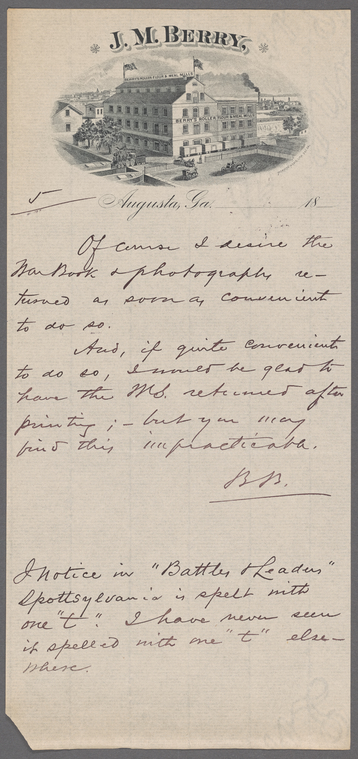 J. M. BERRY,
BERRY'S ROLLER FLOUR & MEAL MILLS
5
Augusta, Ga. 18
Of course I desire the
War Book & photographs re-
turned as soon as convenient
to do so.
And, if quite convenient
to do so, I would be glad to
have the MS. returned after
printing; – but you may
find this impracticable.
B.B.
I notice in "Battles & Leaders"
Spottsylvania is spelt with
one "t". I have never seen
it spelled with one "t" else-
where.